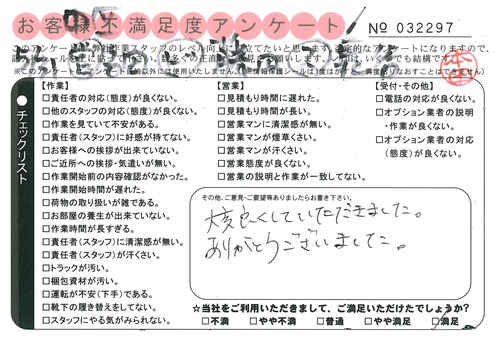 お客様不満足度アンケート
№ 032297
本
チェックリスト
【作業】
□責任者の対応(態度)が良くない。
□他のスタッフの対応(態度)が良くない。
□作業を見ていて不安がある。
□責任者(スタッフ)に好感が持てない。
□お客様への挨拶が出来ていない。
□ご近所への挨拶・気遣いが無い。
□作業開始前の内容確認がなかった。
□作業開始時間が遅れた。
□荷物の取り扱いが雑である。
□お部屋の養生が出来ていない。
□作業時間が長すぎる。
□責任者(スタッフ)に清潔感が無い。
□責任者(スタッフ)が汗くさい。
□トラックが汚い。
□梱包資材が汚い。
□運転が不安(下手)である。
□靴下の履き替えをしてない。
□スタッフにやる気がみられない。
【営業】
□見積もり時間に遅れた。
□見積もり時間が長い。
□営業マンに清潔感が無い。
□営業マンが煙草くさい。
□営業マンが汗くさい。
□営業態度が良くない。
□営業の説明と作業が一致してない。
【受付・その他】
□電話の対応が良くない。
□オプション業者の説明
・作業が良くない。
□オプション業者の対応
(態度)が良くない。
その他、ご意見・ご要望等ありましたらお書き下さい。
大変良くしていただきました。
ありがとうございました。
☆当社をご利用いただきまして、ご満足いただけたでしょうか?
□不満 □やや不満 □普通 □やや満足 □満足